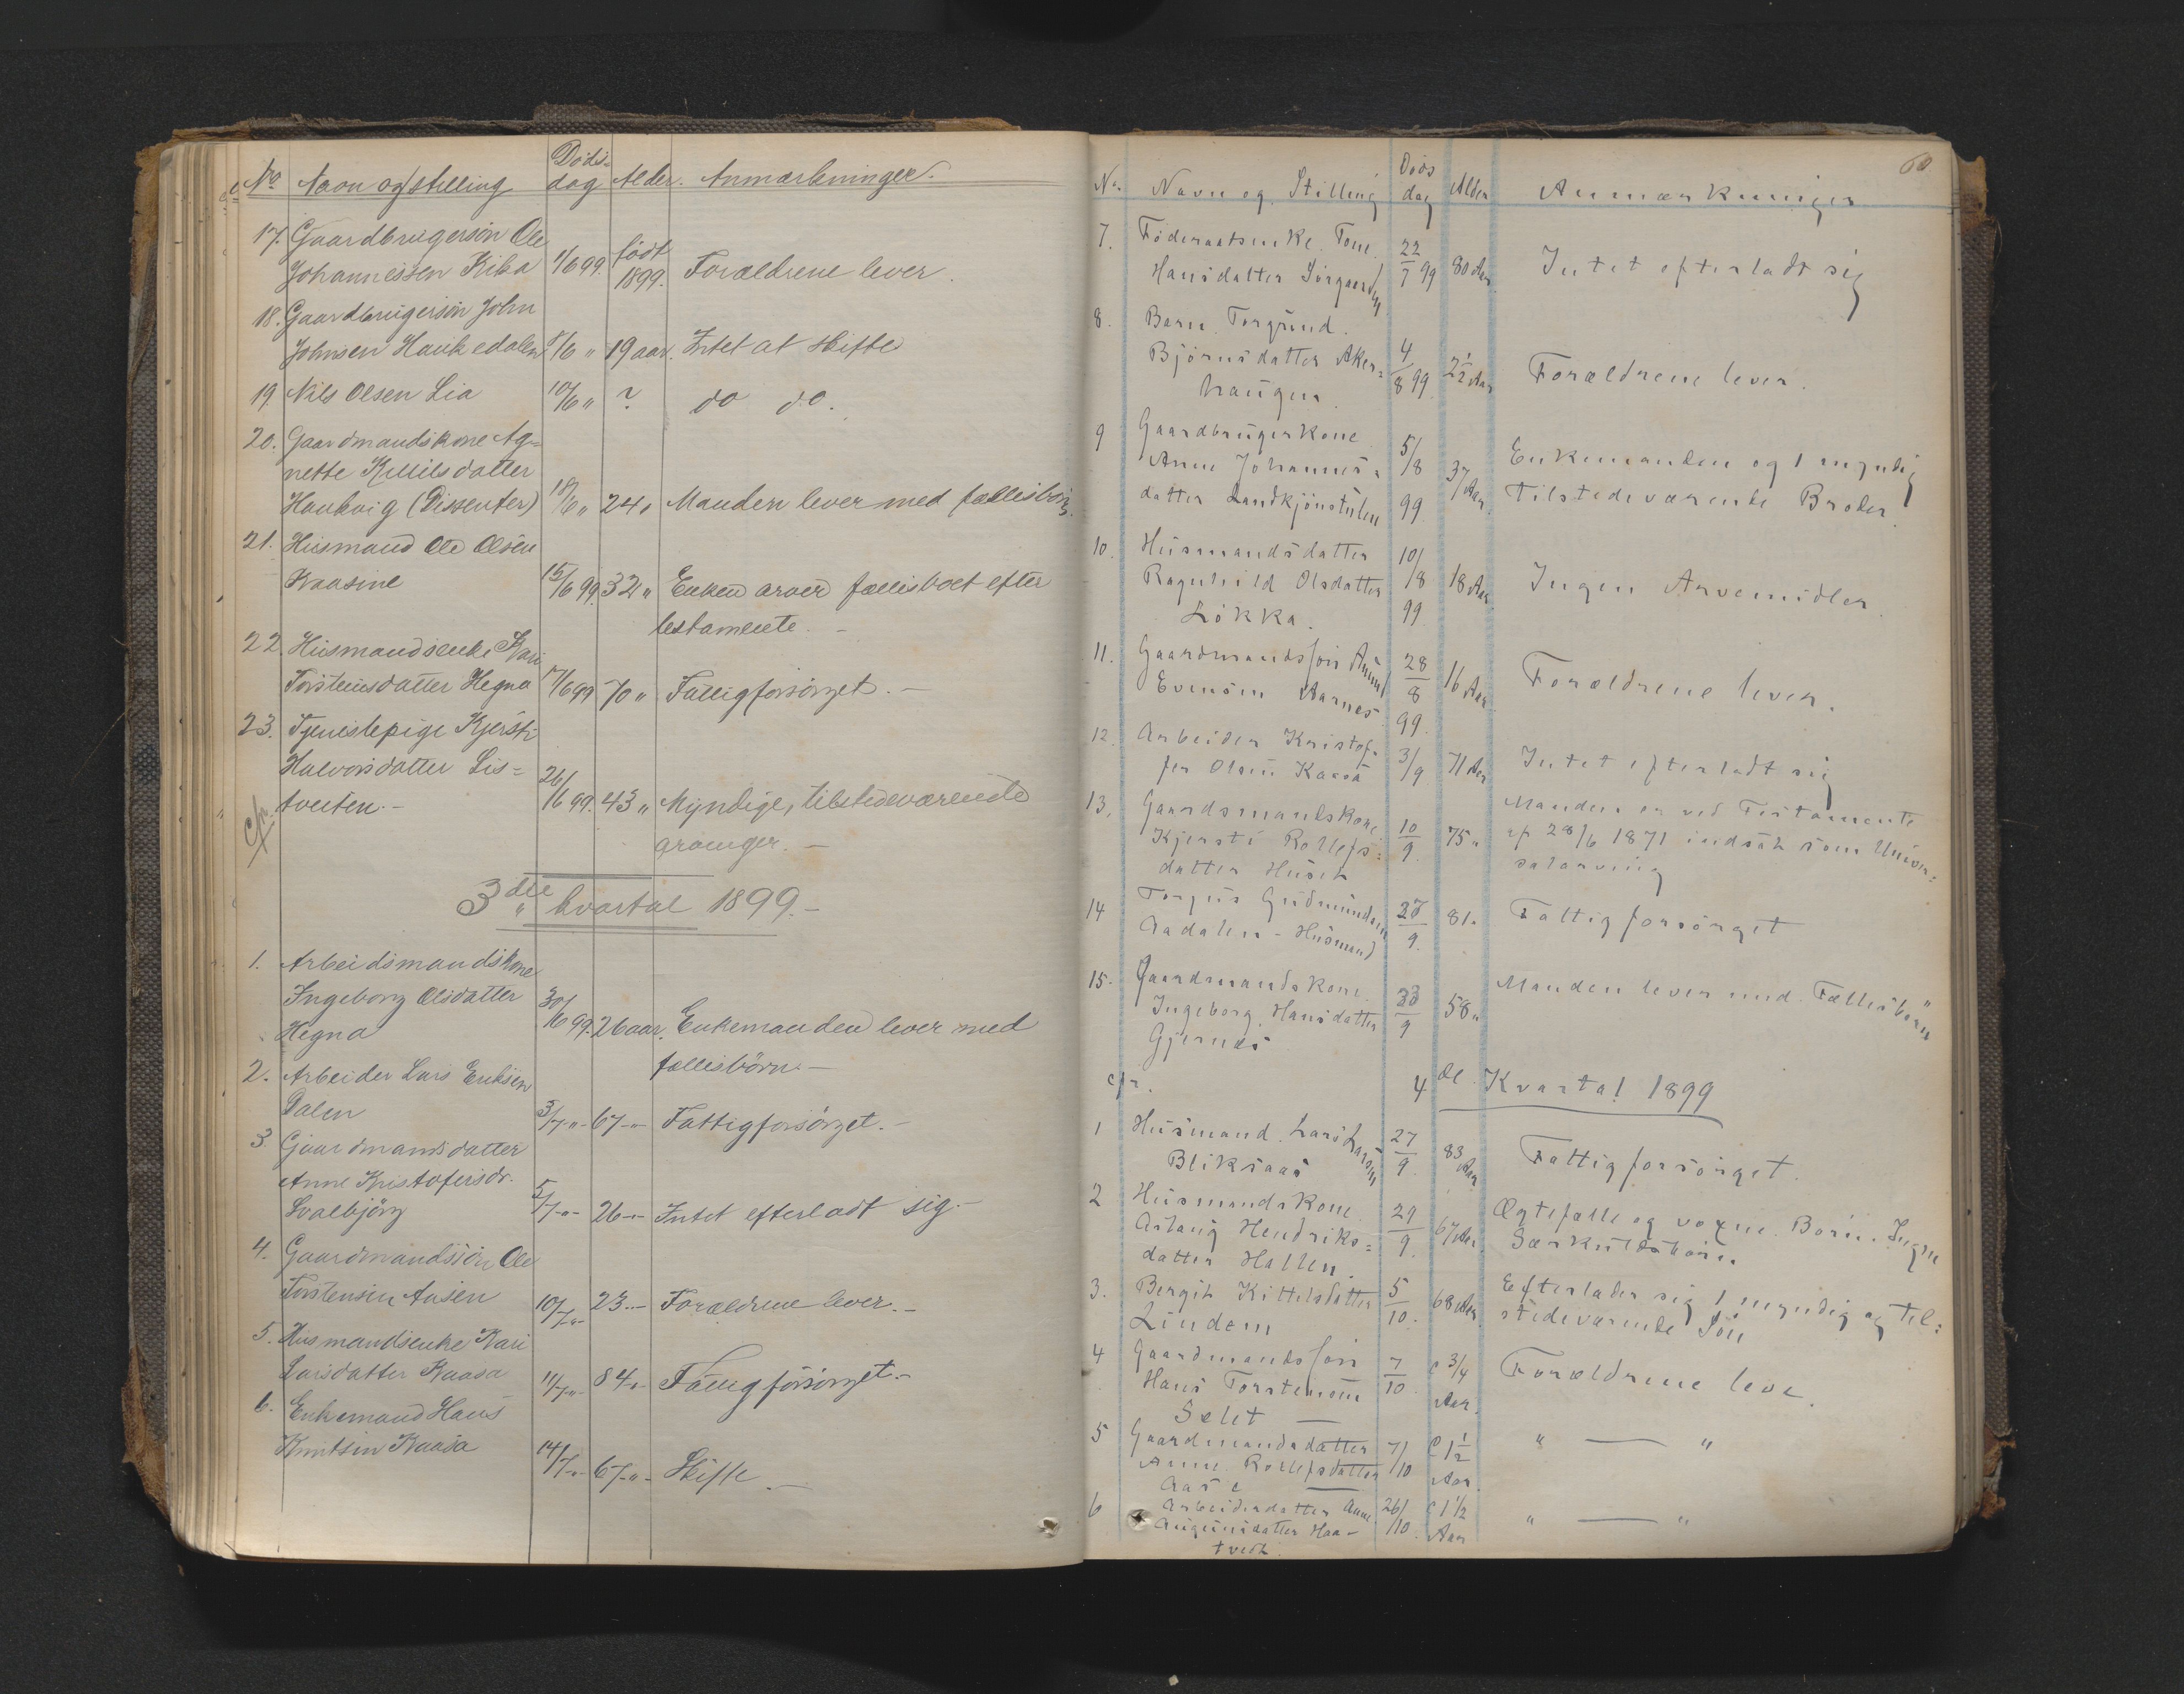 No Navn og stilling Döds= dag Alder. Anmærkninger.
17. Gaardbrugersön Ole
Johannessen Kiba 1/6 99. født 1899. Forældrene lever.
18. Gaardbrugersön John
Johnsen Haukedalen /6 " 19 aar. Intet at skifte
19. Nils Olsen Lia 10/6 " ? do do.
20. Gaardmandskone Ag=
nette Kittilsdatter
Haukvig (Dissenter) /6 " 24 " Manden lever med fællesbörn.
21. Husmand Ole Olsen
Kaasine 15/6 99. 32 " Enken arver fællesboet efter
testamente. -
22. Husmandsenke Kari
Torsteinsdatter Hegna 17/6 99 70 " Fattigforsörget. -
23. Tjenestepige Kjersti
Halvorsdatter Lis=
tveiten. - 26/6 99. 43 " Myndige, tilstedeværende
arvinger. -
3die kvartal 1899. -
1. Arbeidsmandskone
Ingeborg Olsdatter
Hegna 30/6 99. 26 aar. Enkemanden lever med
fællesbörn. -
2. Arbeider Lars Eriksen
Dalen 3/7 -"- 67 -"- Fattigforsörget. -
3. Gaardmandsdatter
Anne Kristofersdr.
Svalbjörg 5/7 -"- 26 -"- Intet efterladt sig. -
4. Gaardmandssön Ole
Torstensen Aasen 10/7 -"- 23 -"- Forældrene lever. -
5. Husmandsenke Kari
Larsdatter Kaasa 11/7 -"- 84 -"- Fattigforsörget. -
6. Enkemand Hans
Knutsen Kaasa 14/7 -"- 67 -"- Skifte. -
60
No. Navn og Stilling Döds dag Alder Anmærkninger
7. Föderaadsenke Tone 22/7 99 80 Aar. Intet efterladt sig
Hansdatter Sörgaarden
8. Barn Torgund
Björnsdatter Aker= 4/8 99 2 1/2 Aar Forældrene lever.
haugen
9 Gaardbrugerkone
Anne Johannes= 5/8 99 37 Aar. Enkemanden og 1 myndig
datter Landkjönstulen tilstedeværende Broder.
10. Husmandsdatter
Ragnhild Olsdatter 10/8 99 18 Aar Ingen Arvemidler.
Lökka.
11. Gaardmandssön
Evensen Aarnes 28/8 99. 16 Aar Forældrene lever.
12. Arbeider Kristof=
fer Olsen Kaasa 3/9 71 Aar Intet efterladt sig
13. Gaardsmandskone
Kjersti Rollefs= 10/9. 75 " Manden er ved Testamente
datter Husih af 28/6 1871 indsat som Univer=
salarving
14 Torjus Gudmundsen
Aadalen - Husmand 9. 81 " Fattigforsörget
15. Gaardmandskone
Ingeborg Hansdatter 23/9 58 " Manden lever med Fællesbørn
Gjernes
cfr. 4de Kvartal 1899
1 Husmand Lars Larsen
Bliksaas 27/9. 83 Aar Fattigforsörget.
2 Husmandskone
Aslaug Hendriks= 29/9. 67 Aar. Ægtefælle og voxne Börn. Ingen
datter Hallen. Særkuldsbörn.
3. Bergit Kittilsdatter 5/10. 68 Aar. Efterlader sig 1 myndig og til=
Lindem stedeværende Sön
4 Gaardmandssön
Hans Torstensen 7/10. c 3/4 Aar. Forældrene leve.
Selet -
5 Gaardmandsdatter
Anne Rollefsdatter 7/10 c 1 1/2 Aar. " — "
Aase -
6 Arbeiderdatter Anne 26/10. c 1 1/2 Aar " — "
Augunsdatter Haa-
tvedt.